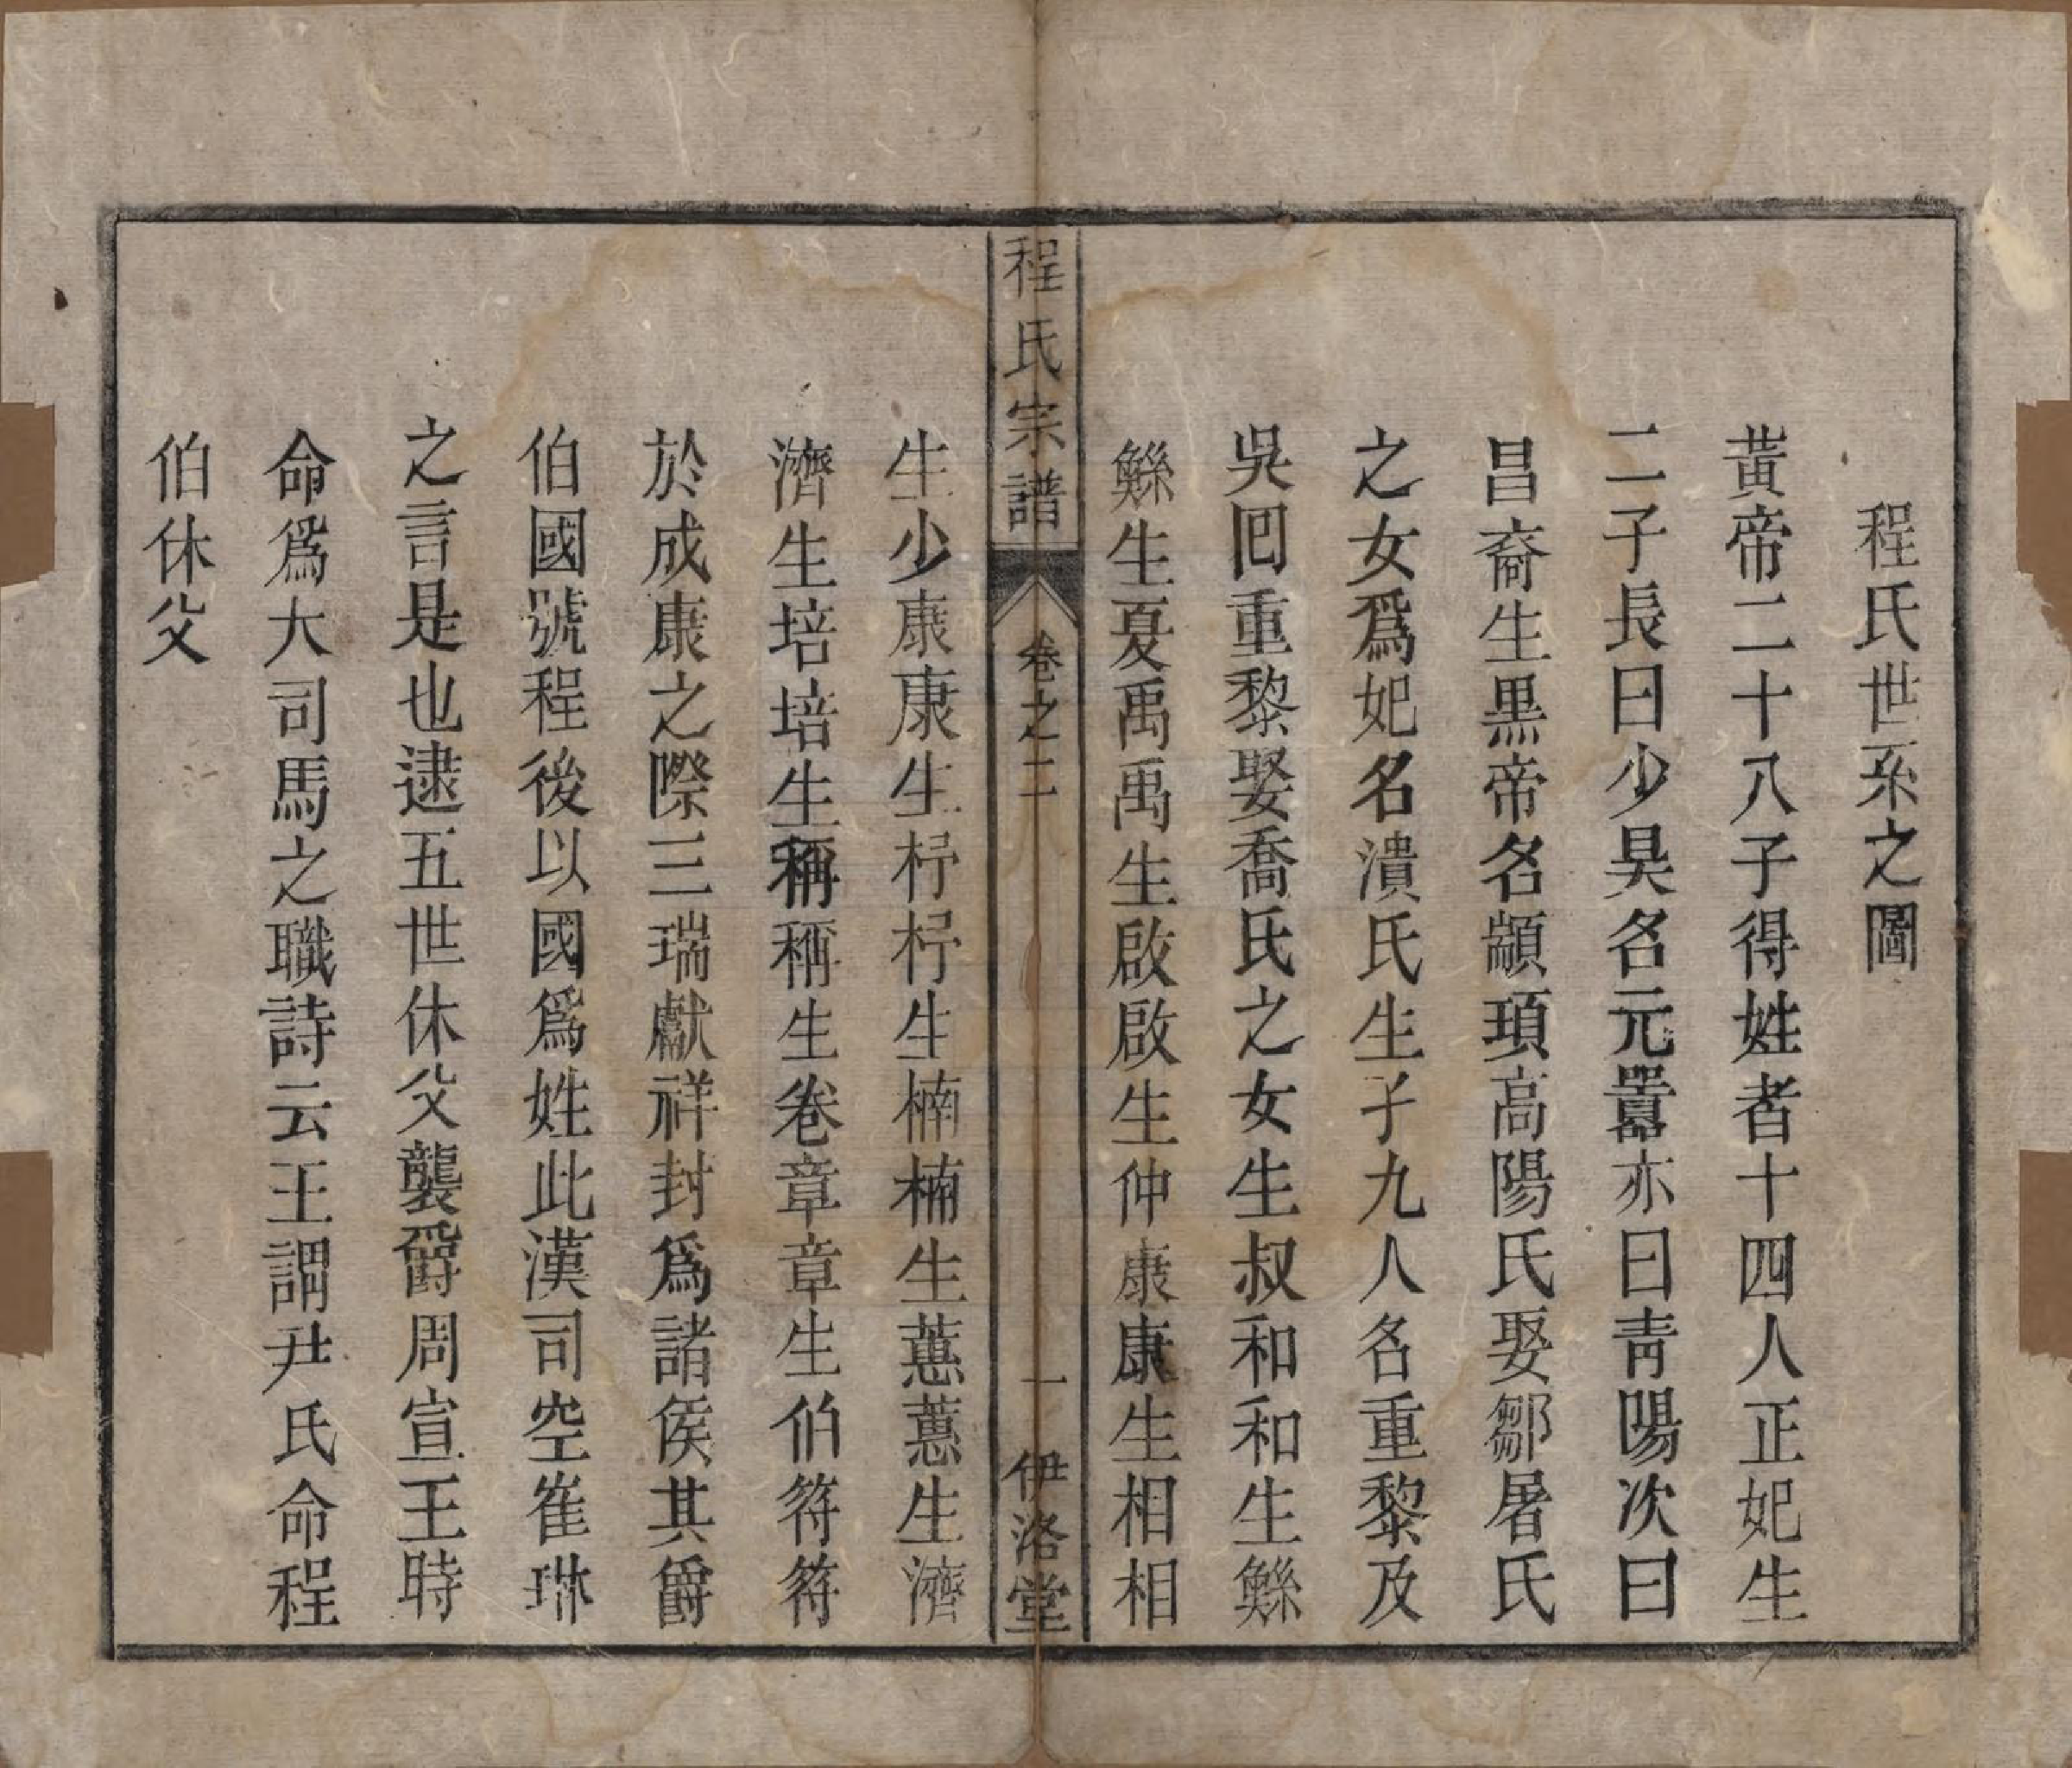 程氏世系之圖
黃帝二十八子得姓者十四人正妃生
二子長曰少昊名元囂亦曰靑陽次曰
昌裔生黑帝名顓頊高陽氏娶鄒屠氏
之女爲妃名潰氏生子九人名重黎及
吳囘重黎娶喬氏之女生叔和和生鯀
鯀生夏禹禹生啟啟生仲康康生相相
程氏宗譜 卷之二 一 伊洛堂
生少康康生杼杼生楠楠生蕙蕙生濟
濟生培培生稱稱生卷章章生伯符符
於成康之際三瑞獻祥封爲諸侯其爵
伯國號程後以國爲姓此漢司空崔琳
之言是也逮五世休父襲爵周宣王時
命爲大司馬之職詩云王謂尹氏命程
伯休父